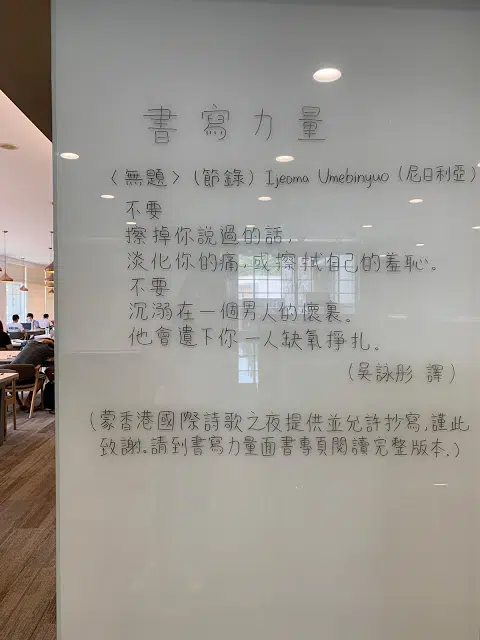 書寫力量
〈無題〉（節錄）Ijeoma Umebinyuo（尼日利亞）
不要
擦掉你說過的話，
淡化你的痛，或擦拭自己的羞恥。
不要
沉溺在一個男人的懷裏。
他會遺下你一人缺氧掙扎。
（吳詠彤 譯）
（蒙香港國際詩歌之夜提供並允許抄寫，謹此
致謝。請到書寫力量面書專頁閱讀完整版本.）